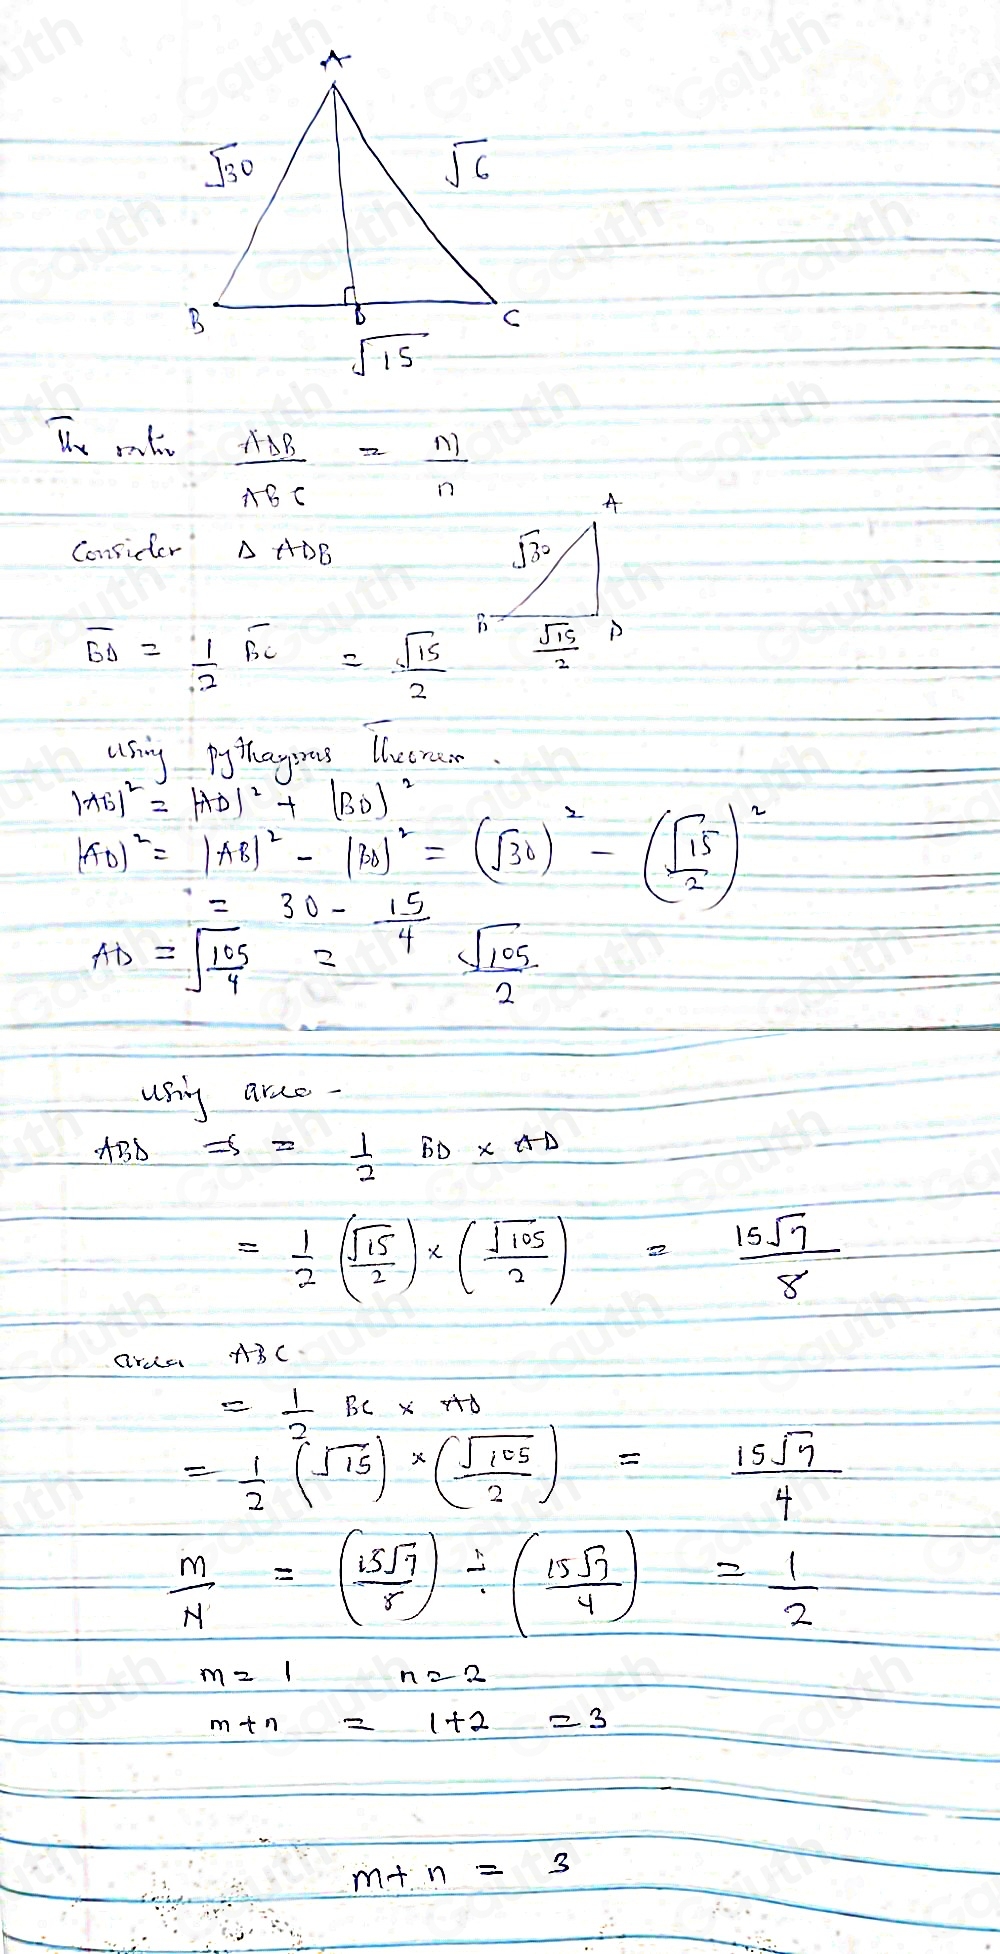 A
√30
√6
B
D
C
√15
The ratio ADB/ABC = m/n
A
Consider Δ ADB
√30
B
√15/2
D
BD = 1/2 BC = √15/2
using pythagoras Theorem.
|AB|² = |AD|² + |BD|²
|AD|² = |AB|² - |BD|² = (√30)² - (√15/2)²
= 30 - 15/4
AD = √105/4 = √105/2
using area -
ABD = = 1/2 BD × AD
= 1/2 (√15/2) × (√105/2) = 15√7/8
area ABC
= 1/2 BC × AD
= 1/2 (√15) × (√105/2) = 15√7/4
m/N = (15√7/8) ÷ (15√7/4) = 1/2
m = 1 n = 2
m + n = 1+2 = 3
m + n = 3
Gauth